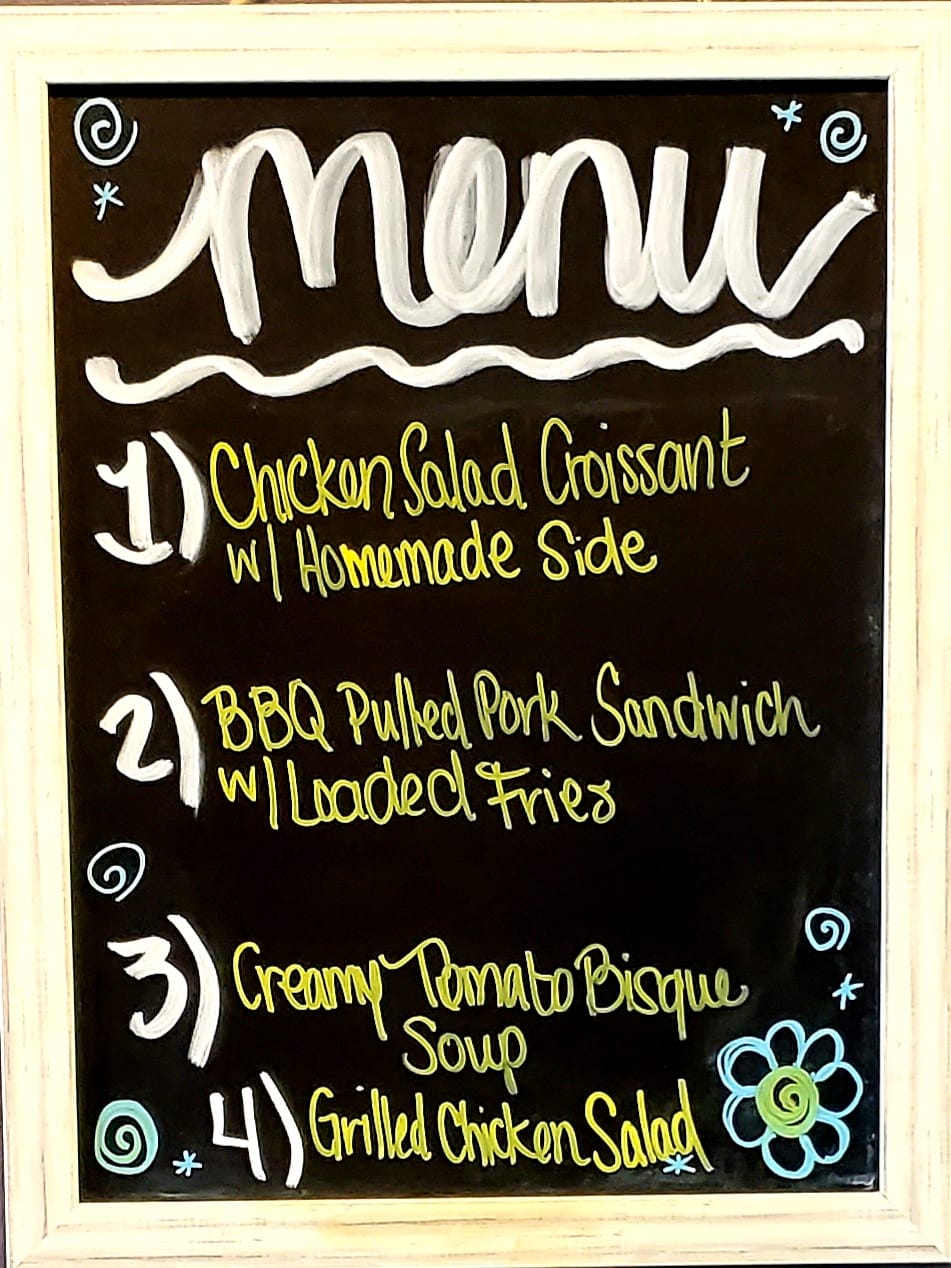 menu
1) Chicken Salad Croissant
w/ Homemade Side
2) BBQ Pulled Pork Sandwich
w/ Loaded Fries
3) Creamy Tomato Bisque
Soup
4) Grilled Chicken Salad